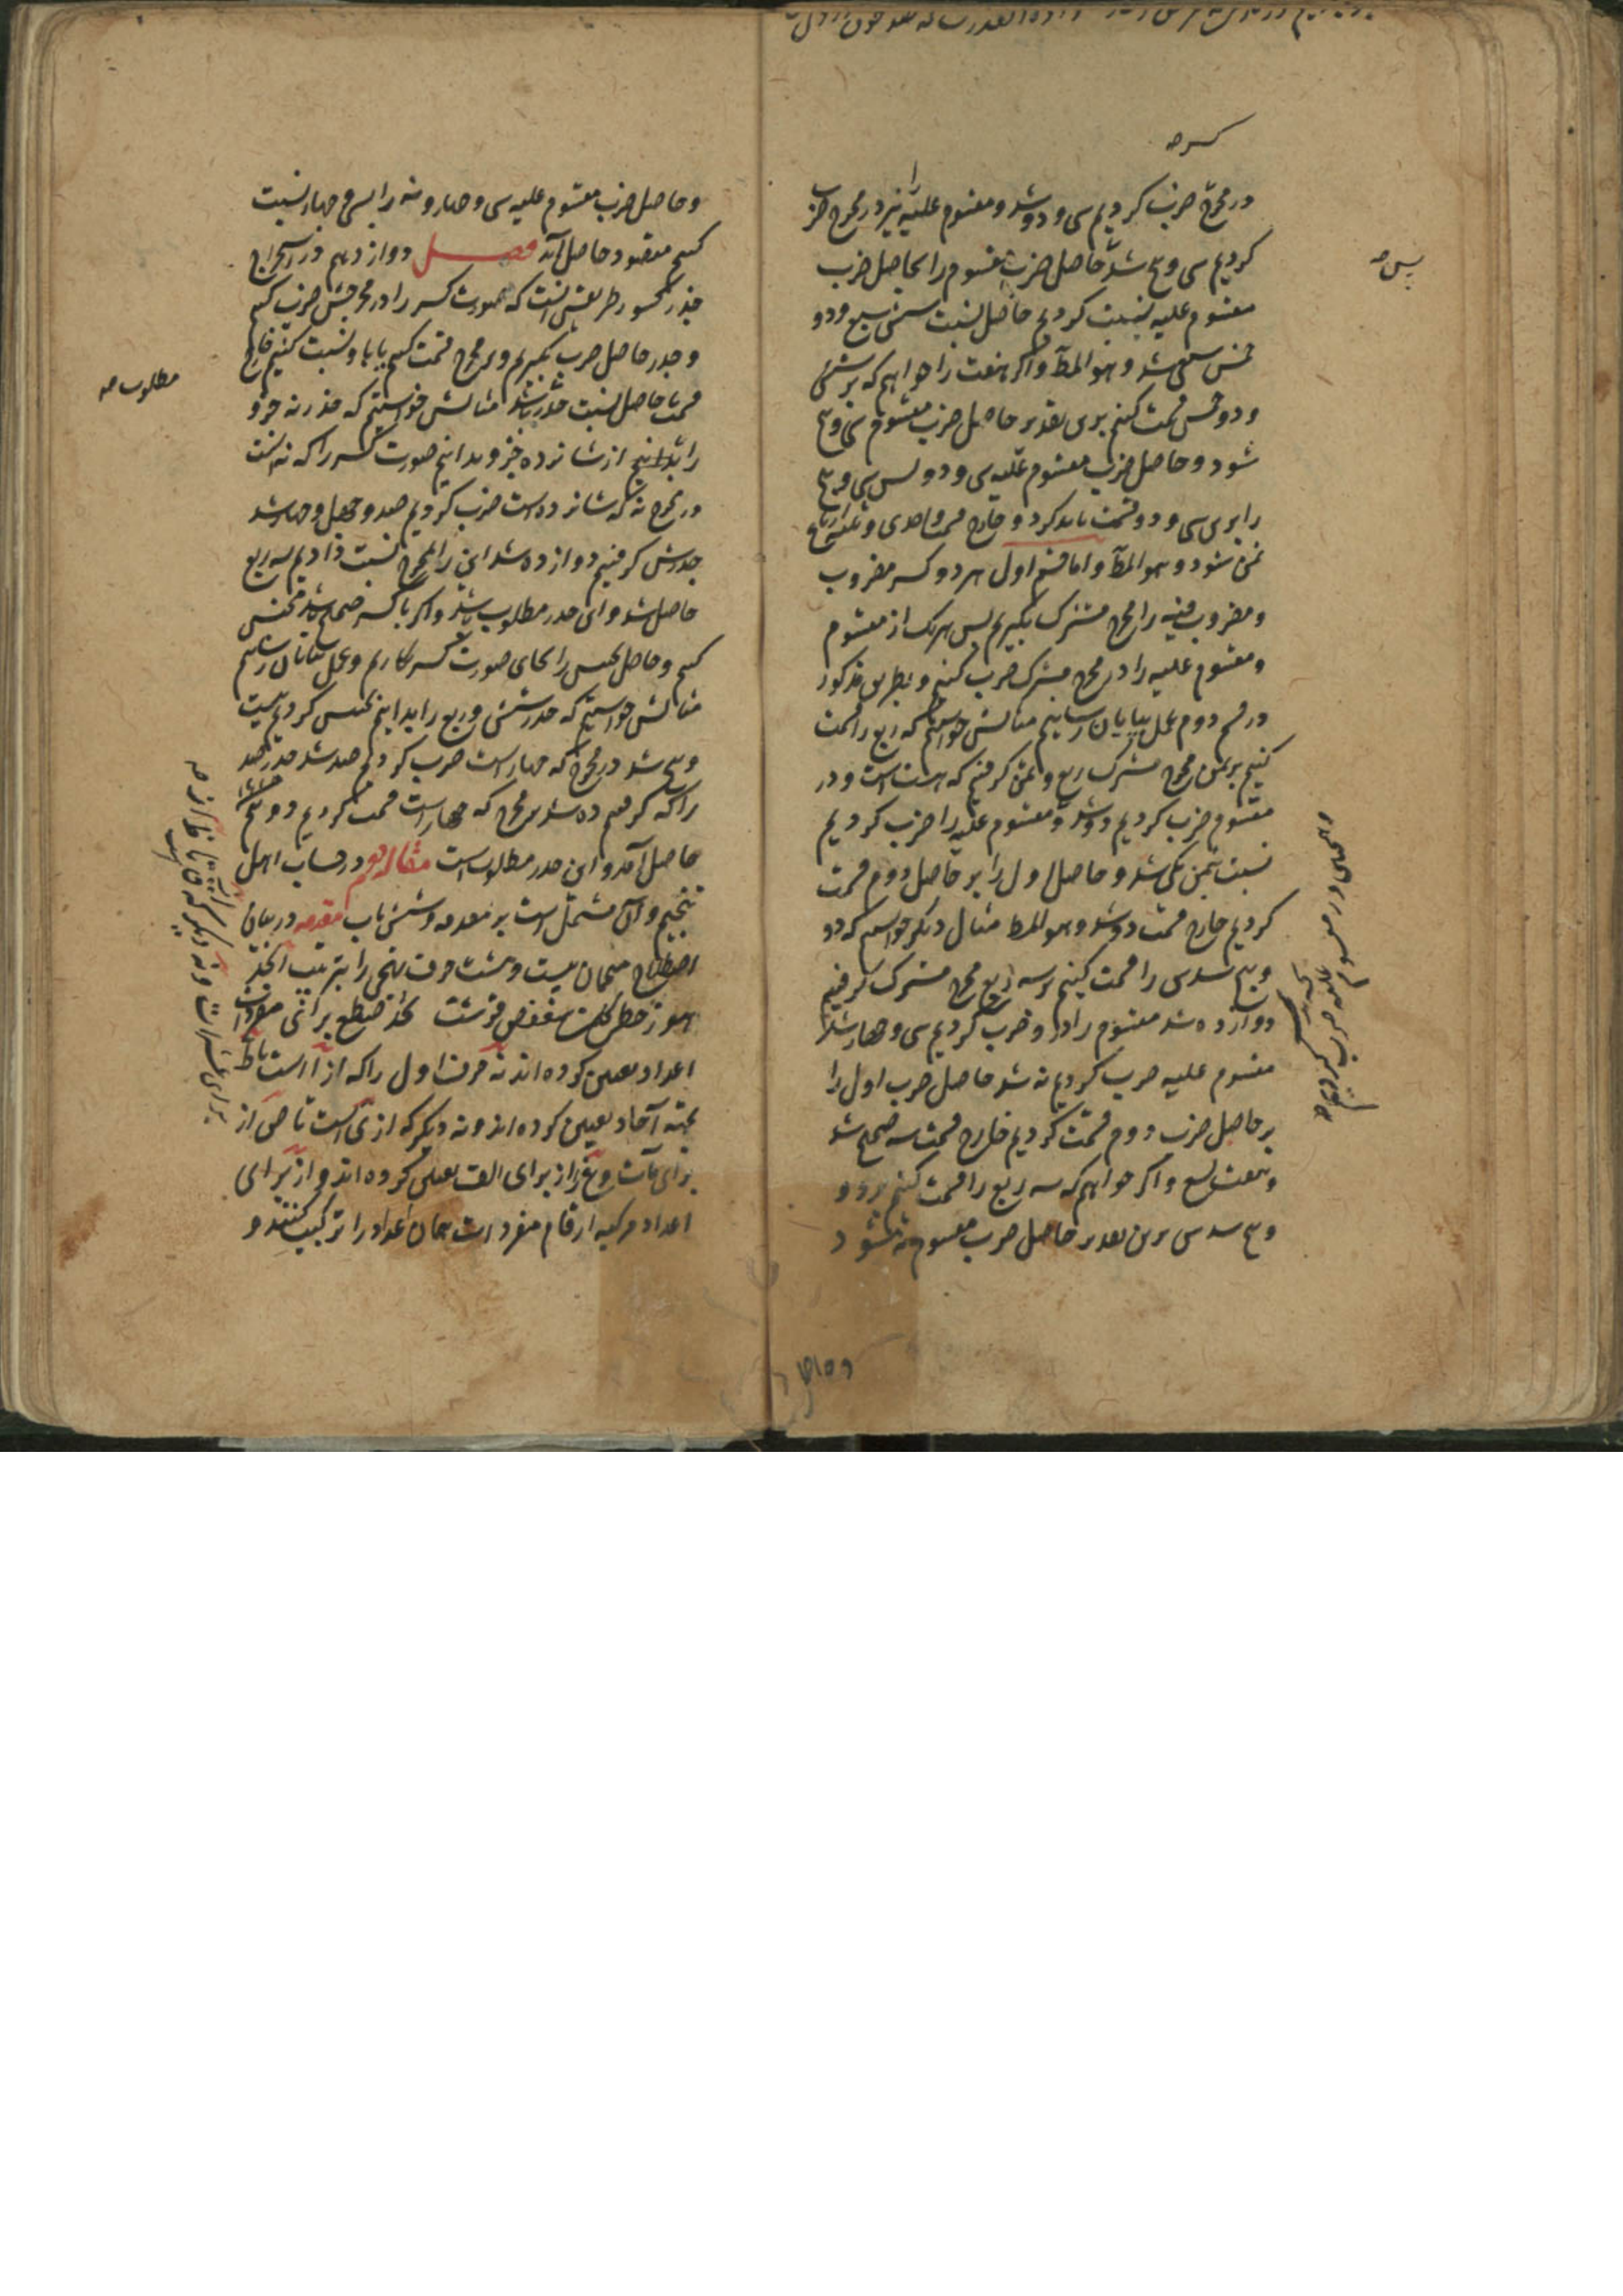 کسر صه
در مخرج ضرب کردیم سی و دو شد و مقسوم علیه را نیز در مخرج ضرب
کردیم سی و پنج شد حاصل ضرب مقسوم را بحاصل ضرب
مقسوم علیه نسبت کردیم حاصل نسبت شش سبع و دو
خمس سبع شد و هو المط و اگر هفت را خواهیم که بر شش
و دو خمس قسمت کنیم برین تقدیر حاصل ضرب مقسوم سی و پنج
شود و حاصل ضرب مقسوم علیه سی و دو پس سی و پنج
را بر سی و دو قسمت باید کرد و خارج قسمت واحدی و ربع
ثمن شود و هو المط و اما قسم اول هر دو کسر مضروب
و مضروب فیه را مخرج مشترک بگیریم پس هر یک از مقسوم
و مقسوم علیه را در مخرج مشترک ضرب کنیم و بطریق مذکور
در قسم دوم عمل بپایان رسانیم مثالش خواستیم که ربع را قسمت
کنیم بر ثمن مخرج مشترک ربع و ثمن گرفتیم که هشت است و در
مقسوم ضرب کردیم دو شد و مقسوم علیه را ضرب کردیم
نسبت ثمن یکی شد و حاصل اول را بر حاصل دوم قسمت
کردیم خارج قسمت دو شد و هو المط مثال دیگر خواستیم که دو
و پنج سدس را قسمت کنیم بر سه ربع مخرج مشترک گرفتیم
دوازده شد مقسوم را در او ضرب کردیم سی و چهار شد
مقسوم علیه ضرب کردیم نه شد حاصل ضرب اول را
بر حاصل ضرب دوم قسمت کردیم خارج قسمت سه صحیح شد
و هفت تسع و اگر خواهیم که سه ربع را قسمت کنیم بر دو
و پنج سدس برین تقدیر حاصل ضرب مقسوم نه شود
پس صه
و حاصل ضرب مقسوم علیه سی و چهار و نه را بسی و چهار نسبت
کنیم مقصود حاصل آید فصل دوازدهم در استخراج
جذر کسور طریقش آنست که صورت کسر را در مخرجش ضرب کنیم
و جذر حاصل ضرب بگیریم و بر مخرج قسمت کنیم یا با او نسبت کنیم خارج
قسمت یا حاصل نسبت جذر باشد مثالش خواستیم که جذر نه جزو
را بدانیم از شانزده جزو بدانیم صورت کسر را که نه است
در مخرج نه که شانزده است ضرب کردیم صد و چهل و چهار شد
جذرش گرفتیم دوازده شد این را بمخرج نسبت دادیم سه ربع
حاصل شد و این جذر مطلوب باشد و اگر با کسر صحاح باشد مجنس
کنیم و حاصل تجنیس را بجای صورت کسر بکار بریم و عمل بپایان رسانیم
مثالش خواستیم که جذر شش و ربع را بدانیم تجنیس کردیم بیست
و پنج شد در مخرج که چهار است ضرب کردیم صد شد جذر صد
را که گرفتیم ده شد بر مخرج که چهار است قسمت کردیم دو و نیم
حاصل آمد و این جذر مطلوب است مقاله دوم در حساب اهل
تنجیم و آن مشتمل است بر مقدمه و شش باب مقدمه در بیان
اصطلاح منجمان بیست و هشت حرف تهجی را بترتیب ابجد
هوز حطی کلمن سعفص قرشت ثخذ ضظغ برای مفردات
اعداد تعیین کرده‌اند نه حرف اول را که از ا است تا ط
بجهة آحاد تعیین کرده‌اند و نه دیگر که از ی است تا ص از
برای مآت و غ را از برای الف تعیین کرده‌اند و از برای
اعداد مرکبه ارقام مفردات همان اعداد را ترکیب کنند و
مطلوب صه